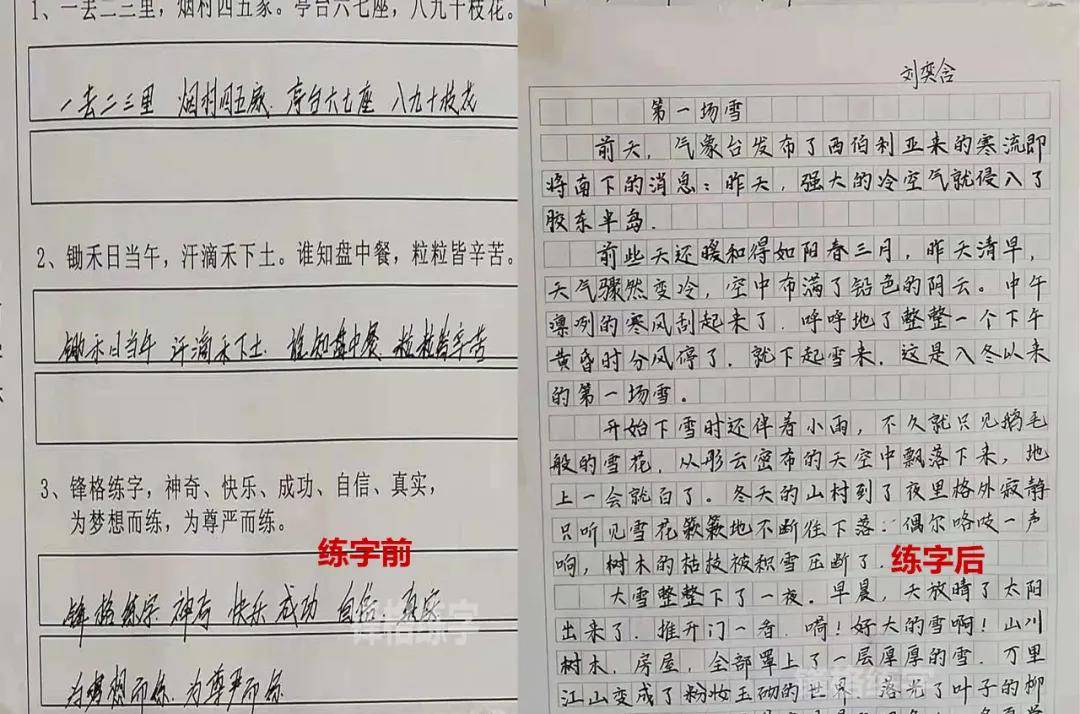 1、一去二三里，烟村四五家。亭台六七座，八九十枝花。
一去二三里 烟村四五家 亭台六七座 八九十枝花
2、锄禾日当午，汗滴禾下土。谁知盘中餐，粒粒皆辛苦。
锄禾日当午 汗滴禾下土 谁知盘中餐 粒粒皆辛苦
3、锋格练字，神奇、快乐、成功、自信、真实，
为梦想而练，为尊严而练。
练字前
锋格练字 神奇 快乐 成功 自信 真实
为梦想而练 为尊严而练
锋格练字
刘奕含
第一场雪
前天，气象台发布了西伯利亚来的寒流即
将南下的消息：昨天，强大的冷空气就侵入了
胶东半岛.
前些天还暖和得如阳春三月，昨天清早，
天气骤然变冷，空中布满了铅色的阴云。中午
凛冽的寒风刮起来了．呼呼地了整整一个下午
黄昏时分风停了．就下起雪来．这是入冬以来
的第一场雪。
开始下雪时还伴着小雨，不久就只见鹅毛
般的雪花，从彤云密布的天空中飘落下来，地
上一会就白了。冬天的山村到了夜里格外寂静
只听见雪花簌簌地不断往下落：偶尔咯吱一声
响，树木的枯枝被积雪压断了．
练字后
大雪整整下了一夜．早晨，天放晴了太阳
出来了．推开门一看．嗬！好大的雪啊！山川
树木．房屋，全部罩上了一层厚厚的雪．万里
江山变成了粉妆玉砌的世界．落光了叶子的柳